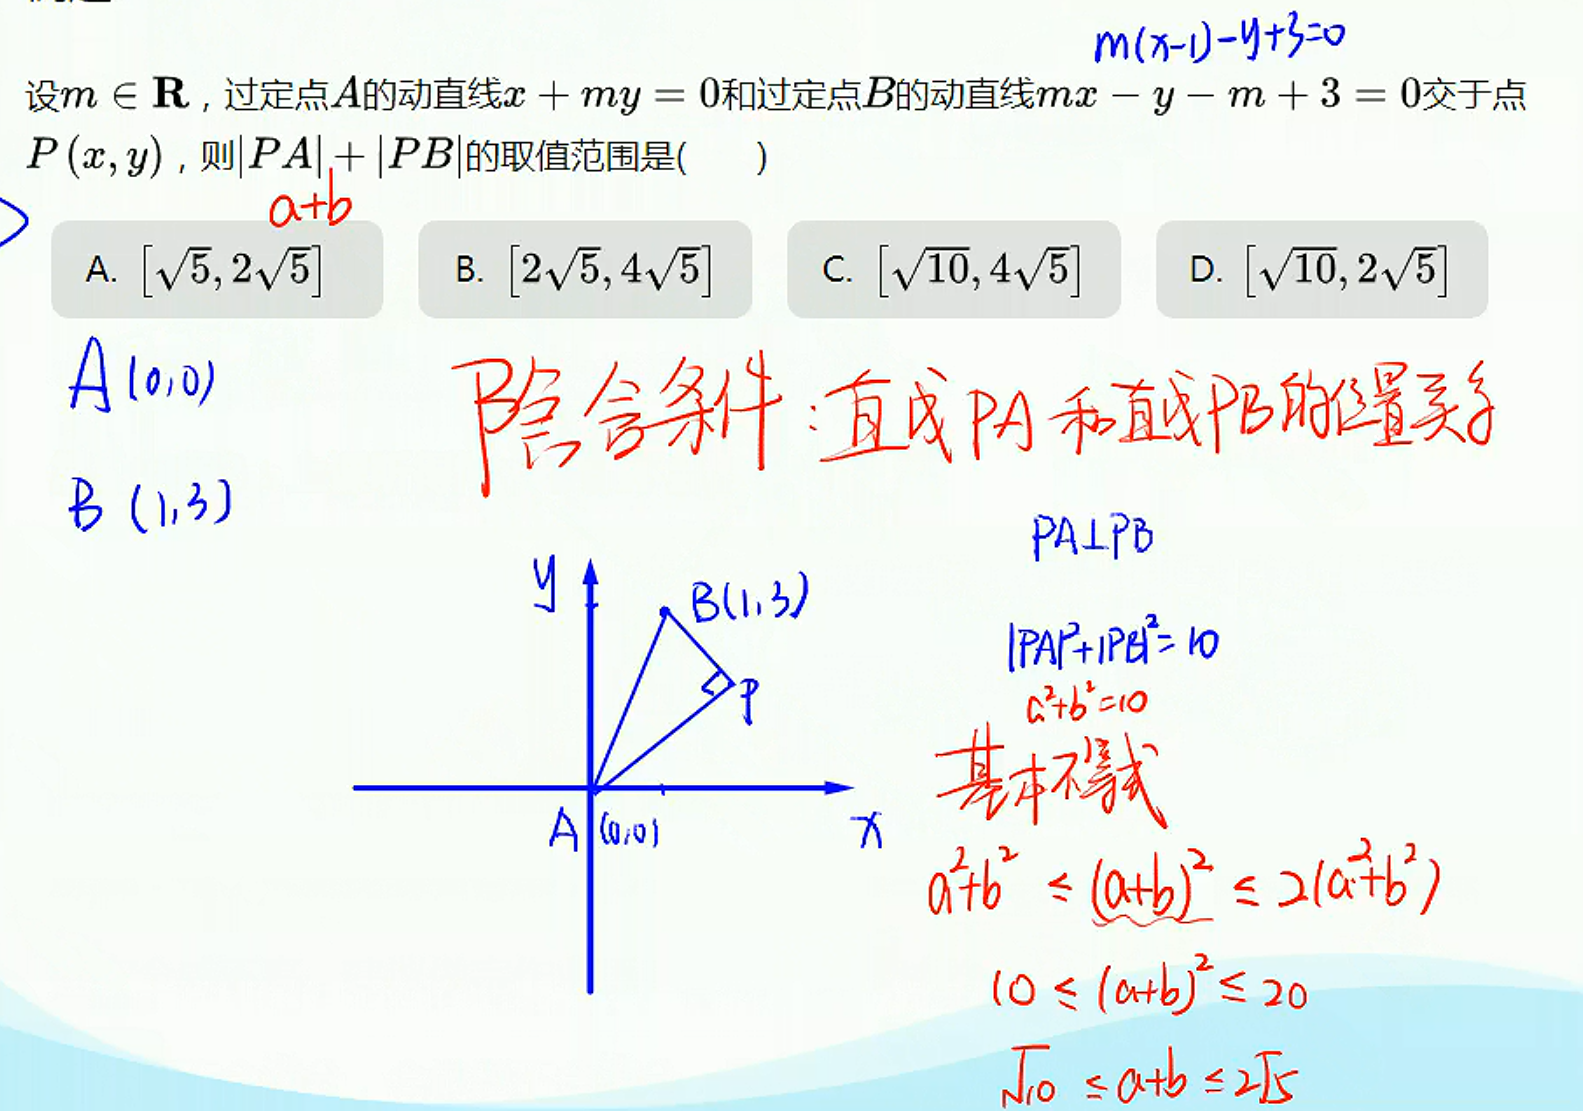 m(x-1)-y+3=0
设m ∈ R，过定点A的动直线x + my = 0和过定点B的动直线mx − y − m + 3 = 0交于点
P (x, y)，则|PA| + |PB|的取值范围是(　　)
a+b
A. [√5, 2√5]
B. [2√5, 4√5]
C. [√10, 4√5]
D. [√10, 2√5]
A(0,0)
隐含条件:直线PA和直线PB的位置关系
B (1,3)
PA⊥PB
y
B(1,3)
|PA|²+|PB|²=10
P
a²+b²=10
基本不等式
A (0,0)
x
a²+b² ≤ (a+b)² ≤ 2(a²+b²)
10 ≤ (a+b)² ≤ 20
√10 ≤ a+b ≤ 2√5